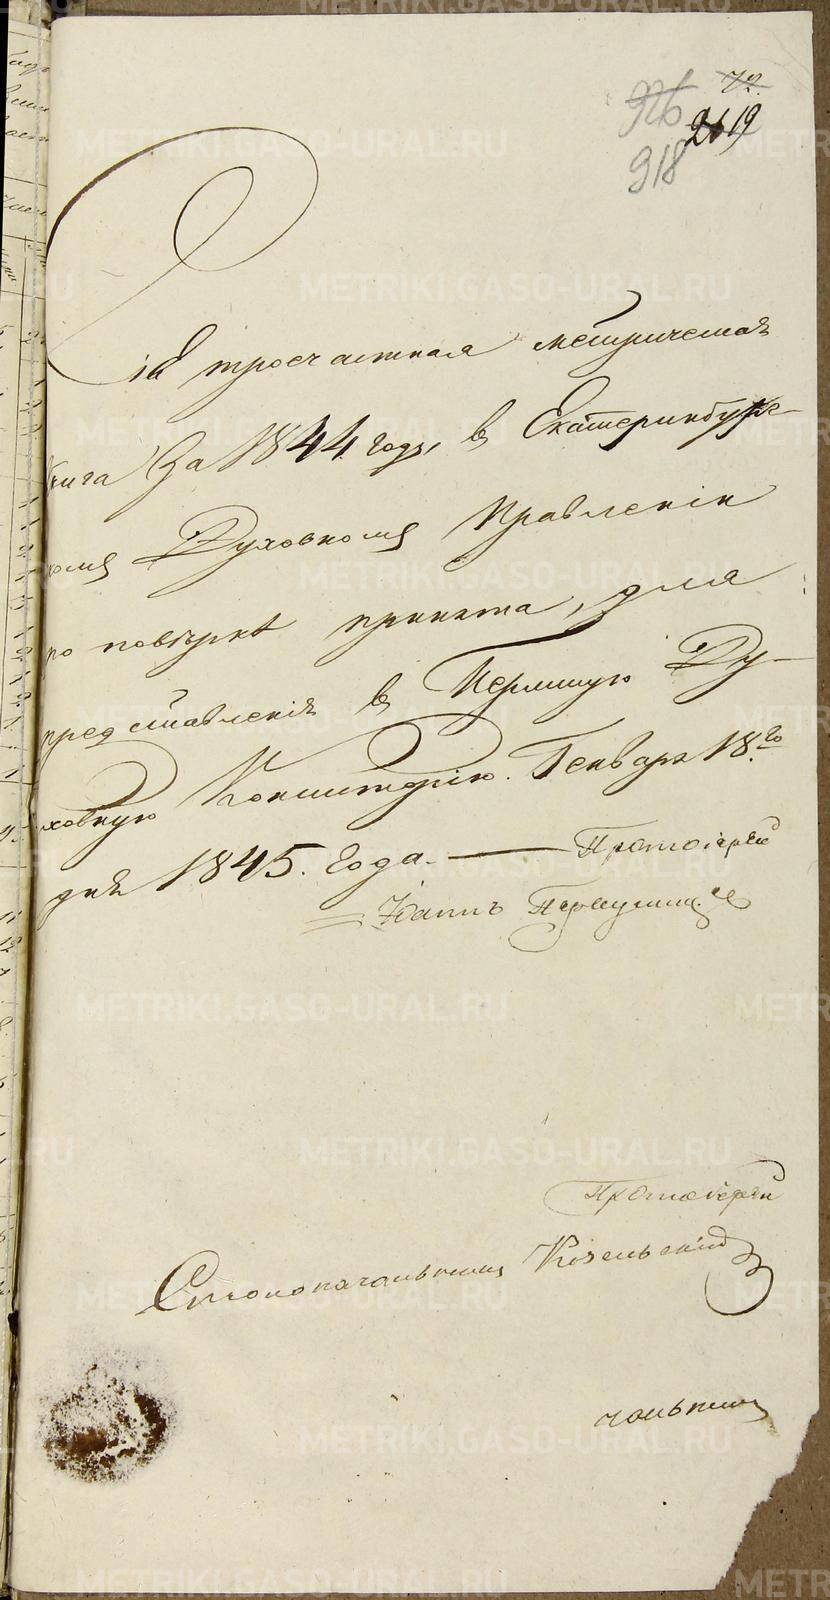 926 72.
26 19
918
Сія троечастная метрическая
книга за 1844. годъ, въ Екатеринбургс-
комъ Духовномъ Правленіи
по повѣркѣ принята, для
представленія въ Пермскую Ду-
ховную Консисторію. Генваря 18.го
дня 1845. Года. — Протоіерей
Іоаннъ
Протоіерей
Столоначальникъ Козельскій
чальникъ
METRIKI.GASO-URAL.RU